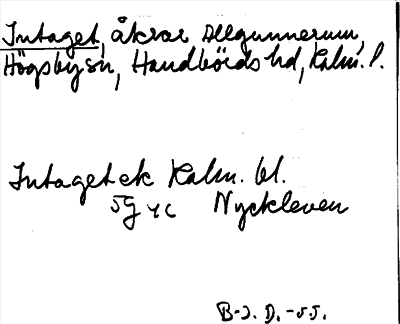 Intaget, åkrar Allgunnerum,
Högsby sn, Handbörds hd, Kalm. l.
Intaget ek Kalm. bl.
5G 4c Nyckleven
B-J. D. -55.